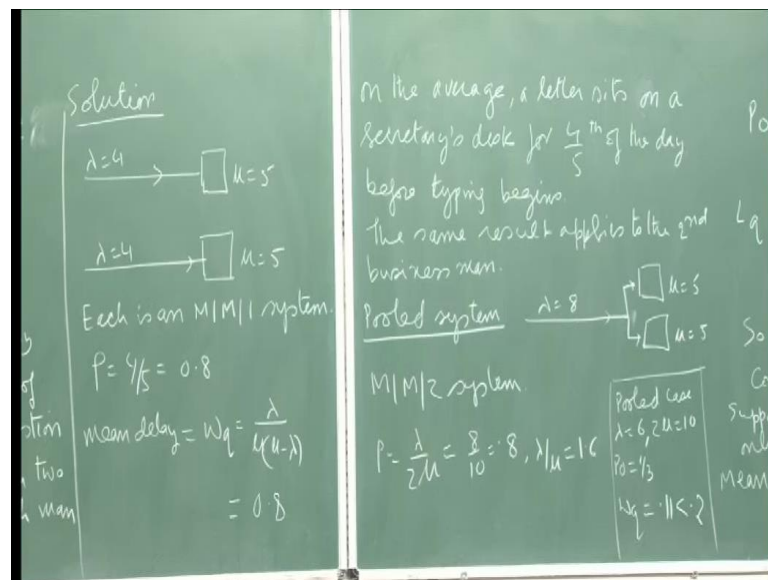 Solution
λ=4
μ=5
λ=4
μ=5
Each is an M/M/1 system.
ρ = 4/5 = 0.8
mean delay = Wq = λ/μ(μ-λ)
= 0.8
of
two
man
On the average, a letter sits on a
secretary's desk for 4/5 th of the day
before typing begins.
The same result applies to the 2nd
business man.
Pooled system
λ=8
μ=5
μ=5
M/M/2 system
ρ = λ/2μ = 8/10 = .8, λ/μ = 1.6
Pooled case
λ=6, 2μ=10
P0=1/3
Wq = .11 < .2
Po
Lq
So
mean